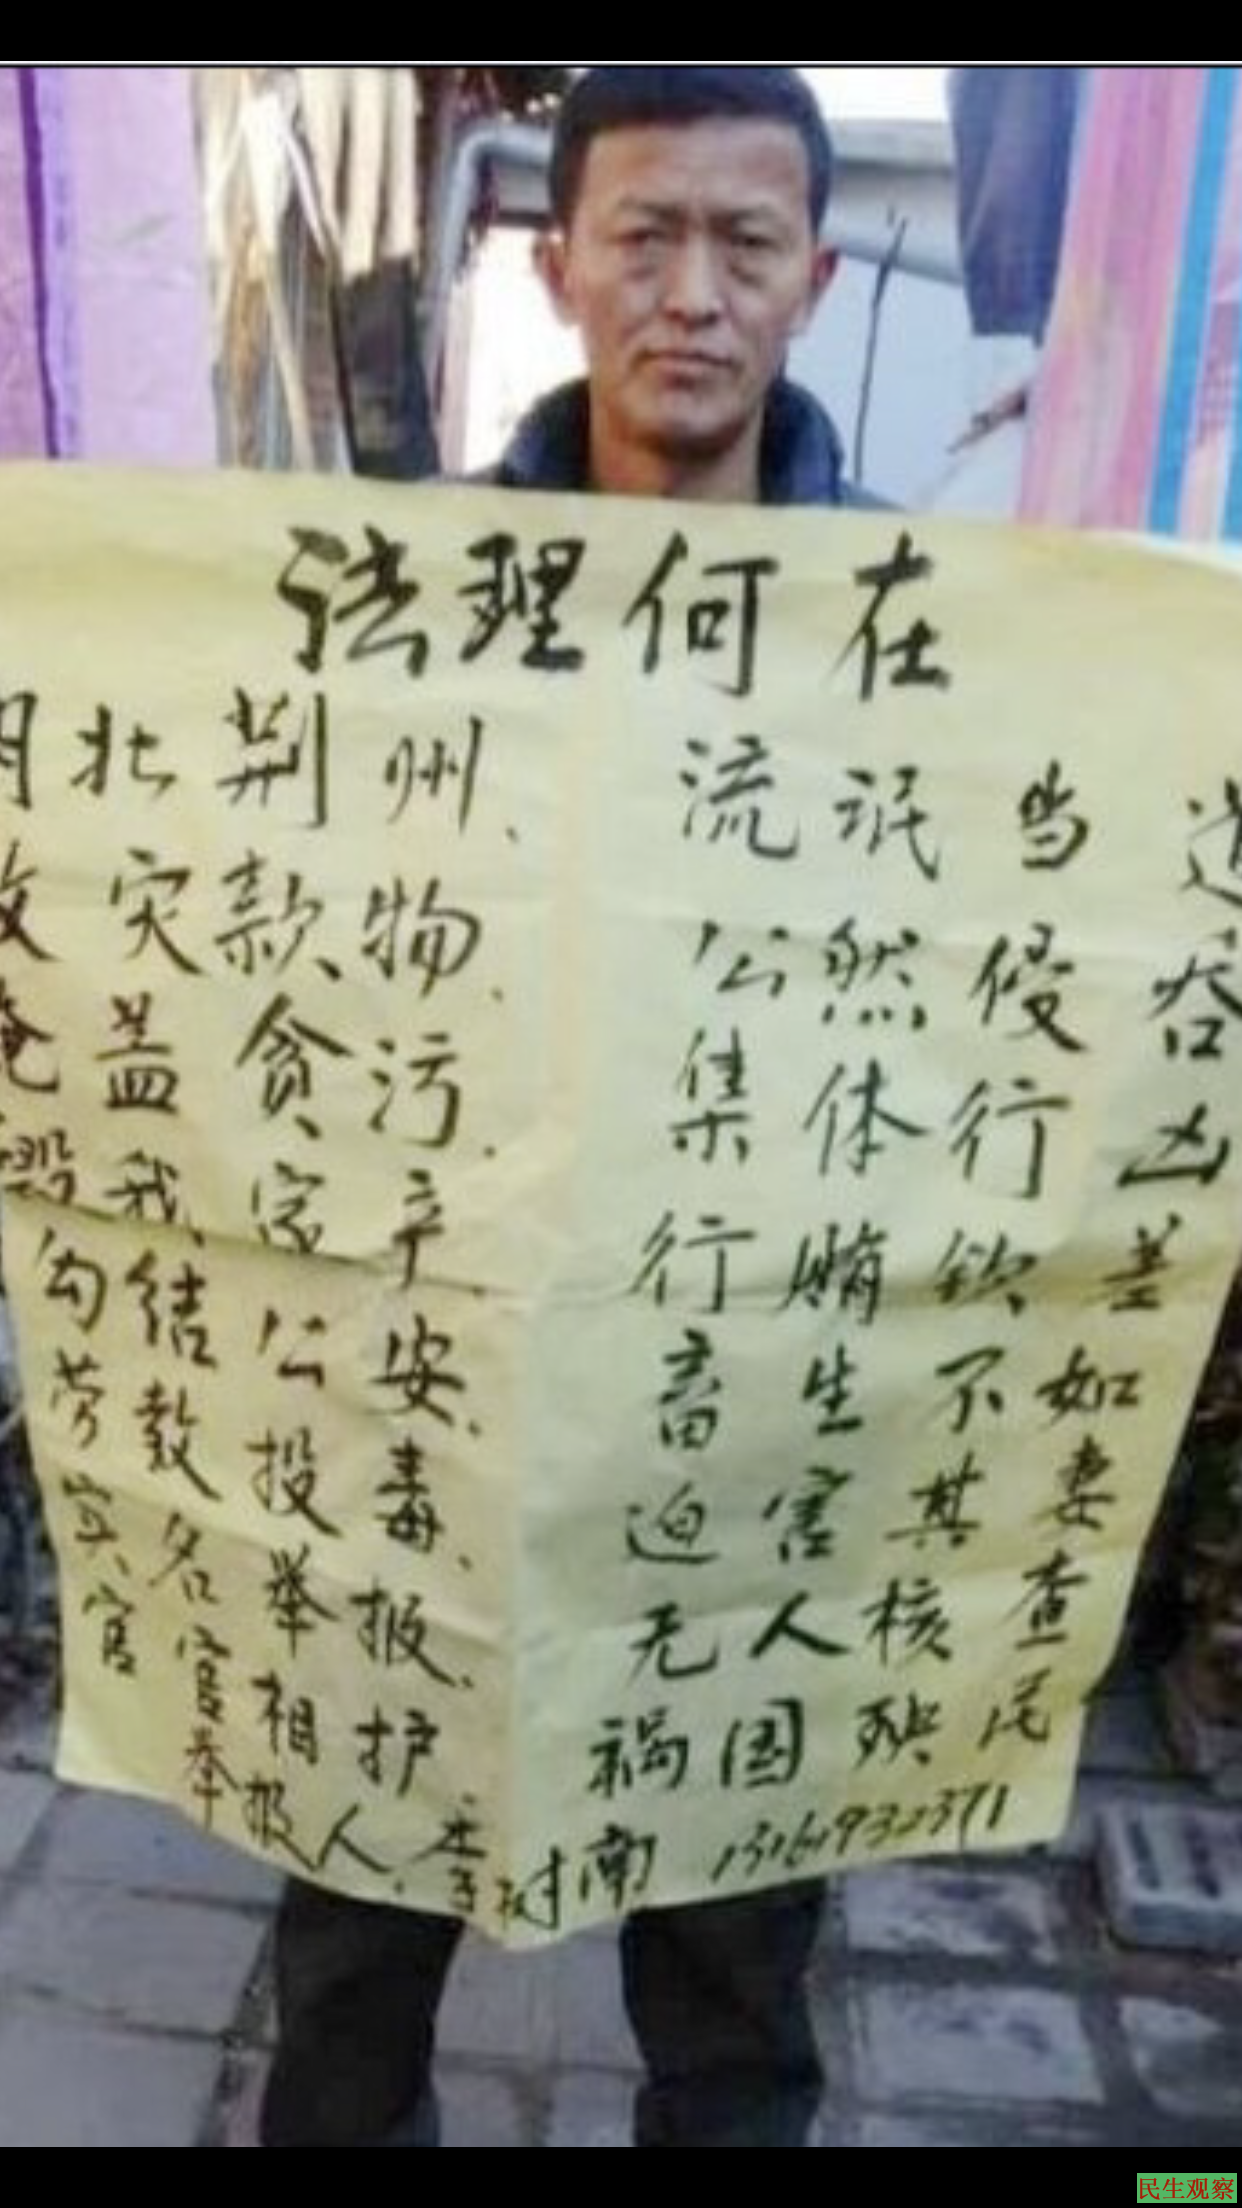 法理何在
湖北荆州、流氓当道
救灾款物、公然侵吞
掩盖贪污、集体行凶
毁我家产、行贿钦差
勾结公安、畜生不如
劳教投毒、迫害其妻
实名举报、无人核查
官官相护、祸国殃民
举报人、李树南 13161932371
民生观察